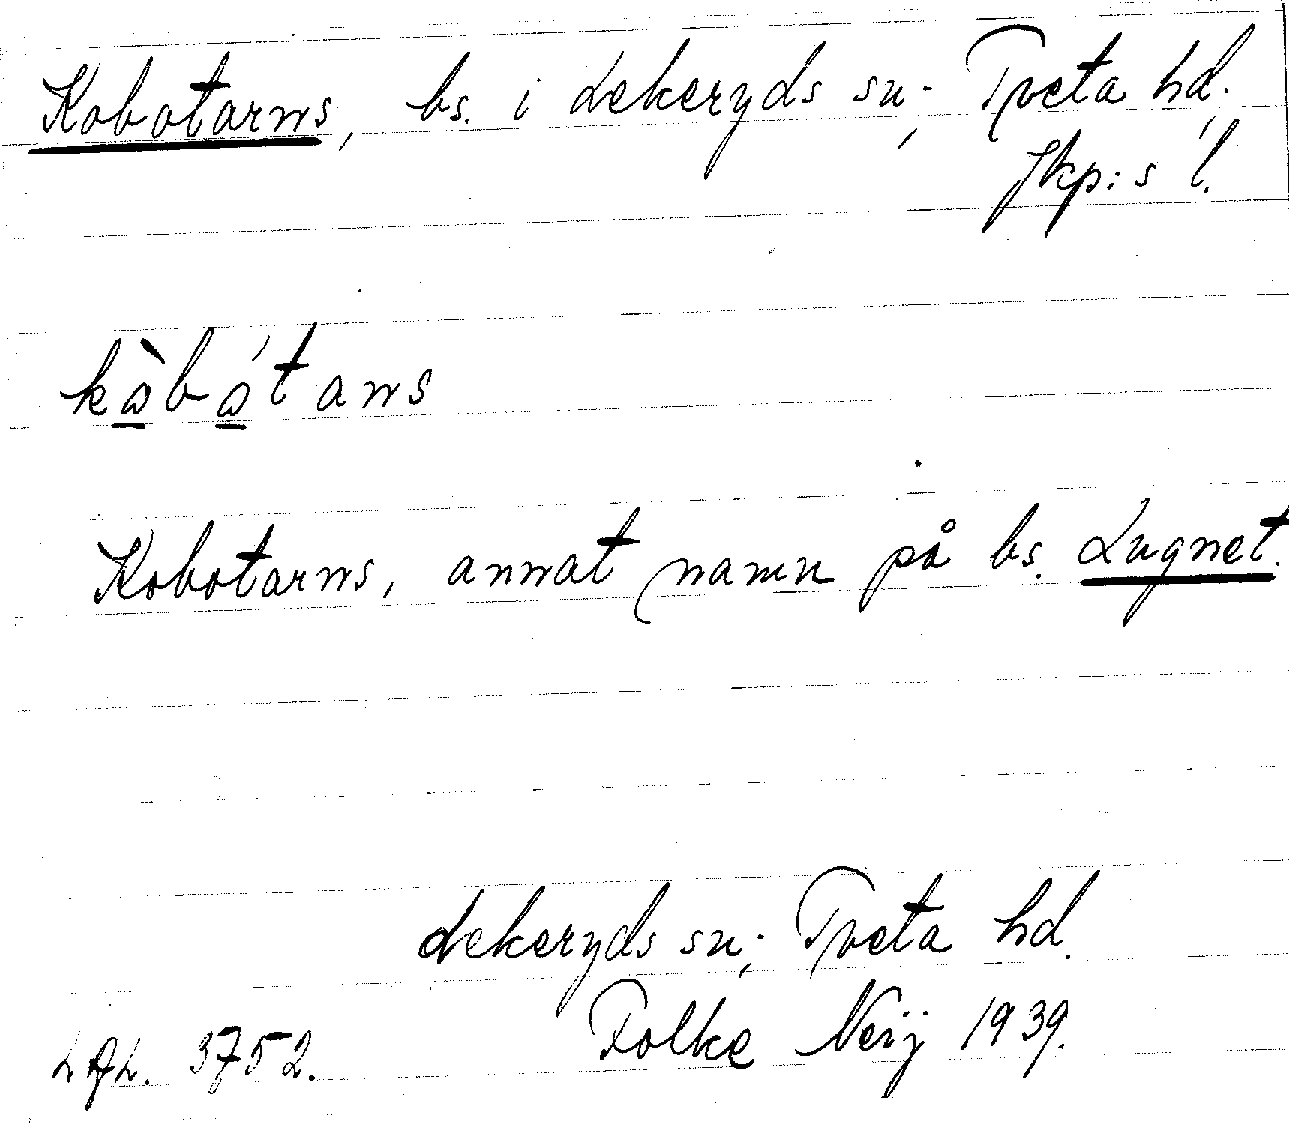 Kobotarns, bs. i Lekeryds sn; Tveta hd.
Jkp:s l.
kòbót arns
Kobotarns, annat namn på bs. Lugnet.
Lekeryds sn; Tveta hd.
Folke Neij 1939.
LAL. 3752.